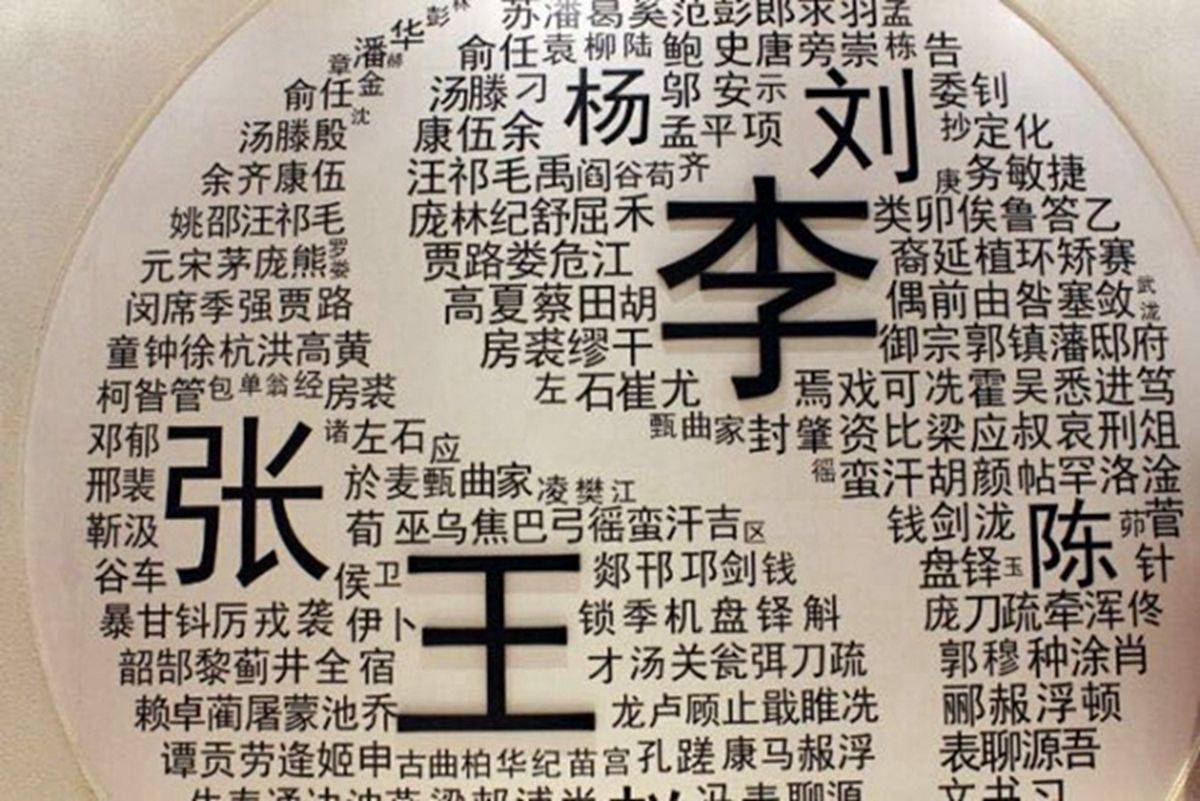 彭林
华 苏潘葛奚范彭郎求羽孟
章潘赫 俞任袁柳陆鲍史唐旁崇栋告
俞任金 汤滕刁 杨 邬安示 刘 委钊
汤滕殷沈 康伍余 孟平项 抄定化
余齐康伍 汪祁毛禹阎谷荀齐 庚务敏捷
姚邵汪祁毛 庞林纪舒屈禾 李 类卯俟鲁答乙
元宋茅庞熊罗娄 贾路娄危江 裔延植环矫赛
闵席季强贾路 高夏蔡田胡 偶前由咎塞敛武泷
童钟徐杭洪高黄 房裘缪干 御宗郭镇藩邸府
柯昝管包单翁经房裘 左石崔尤 焉戏可冼霍吴悉进笃
邓郁 张 诸左石应 甄曲家封肇资比梁应叔哀刑俎
邢裴 於麦甄曲家凌樊江 徭蛮汗胡颜帖罕洛淦
靳汲 荀巫乌焦巴弓徭蛮汗吉区 钱剑泷 陈 茆菅
谷车 侯卫 王 郯邗邛剑钱 盘铎玉 针
暴甘钭厉戎袭伊卜 锁季机盘铎斛 庞刀疏牵浑佟
韶郜黎蓟井全宿 才汤关瓮弭刀疏 郭穆种涂肖
赖卓蔺屠蒙池乔 龙卢顾止戢睢冼 郦赧浮顿
谭贡劳逄姬申古曲柏华纪苗宫孔蹉康马赧浮 表聊源吾
冯表聊源 文书习